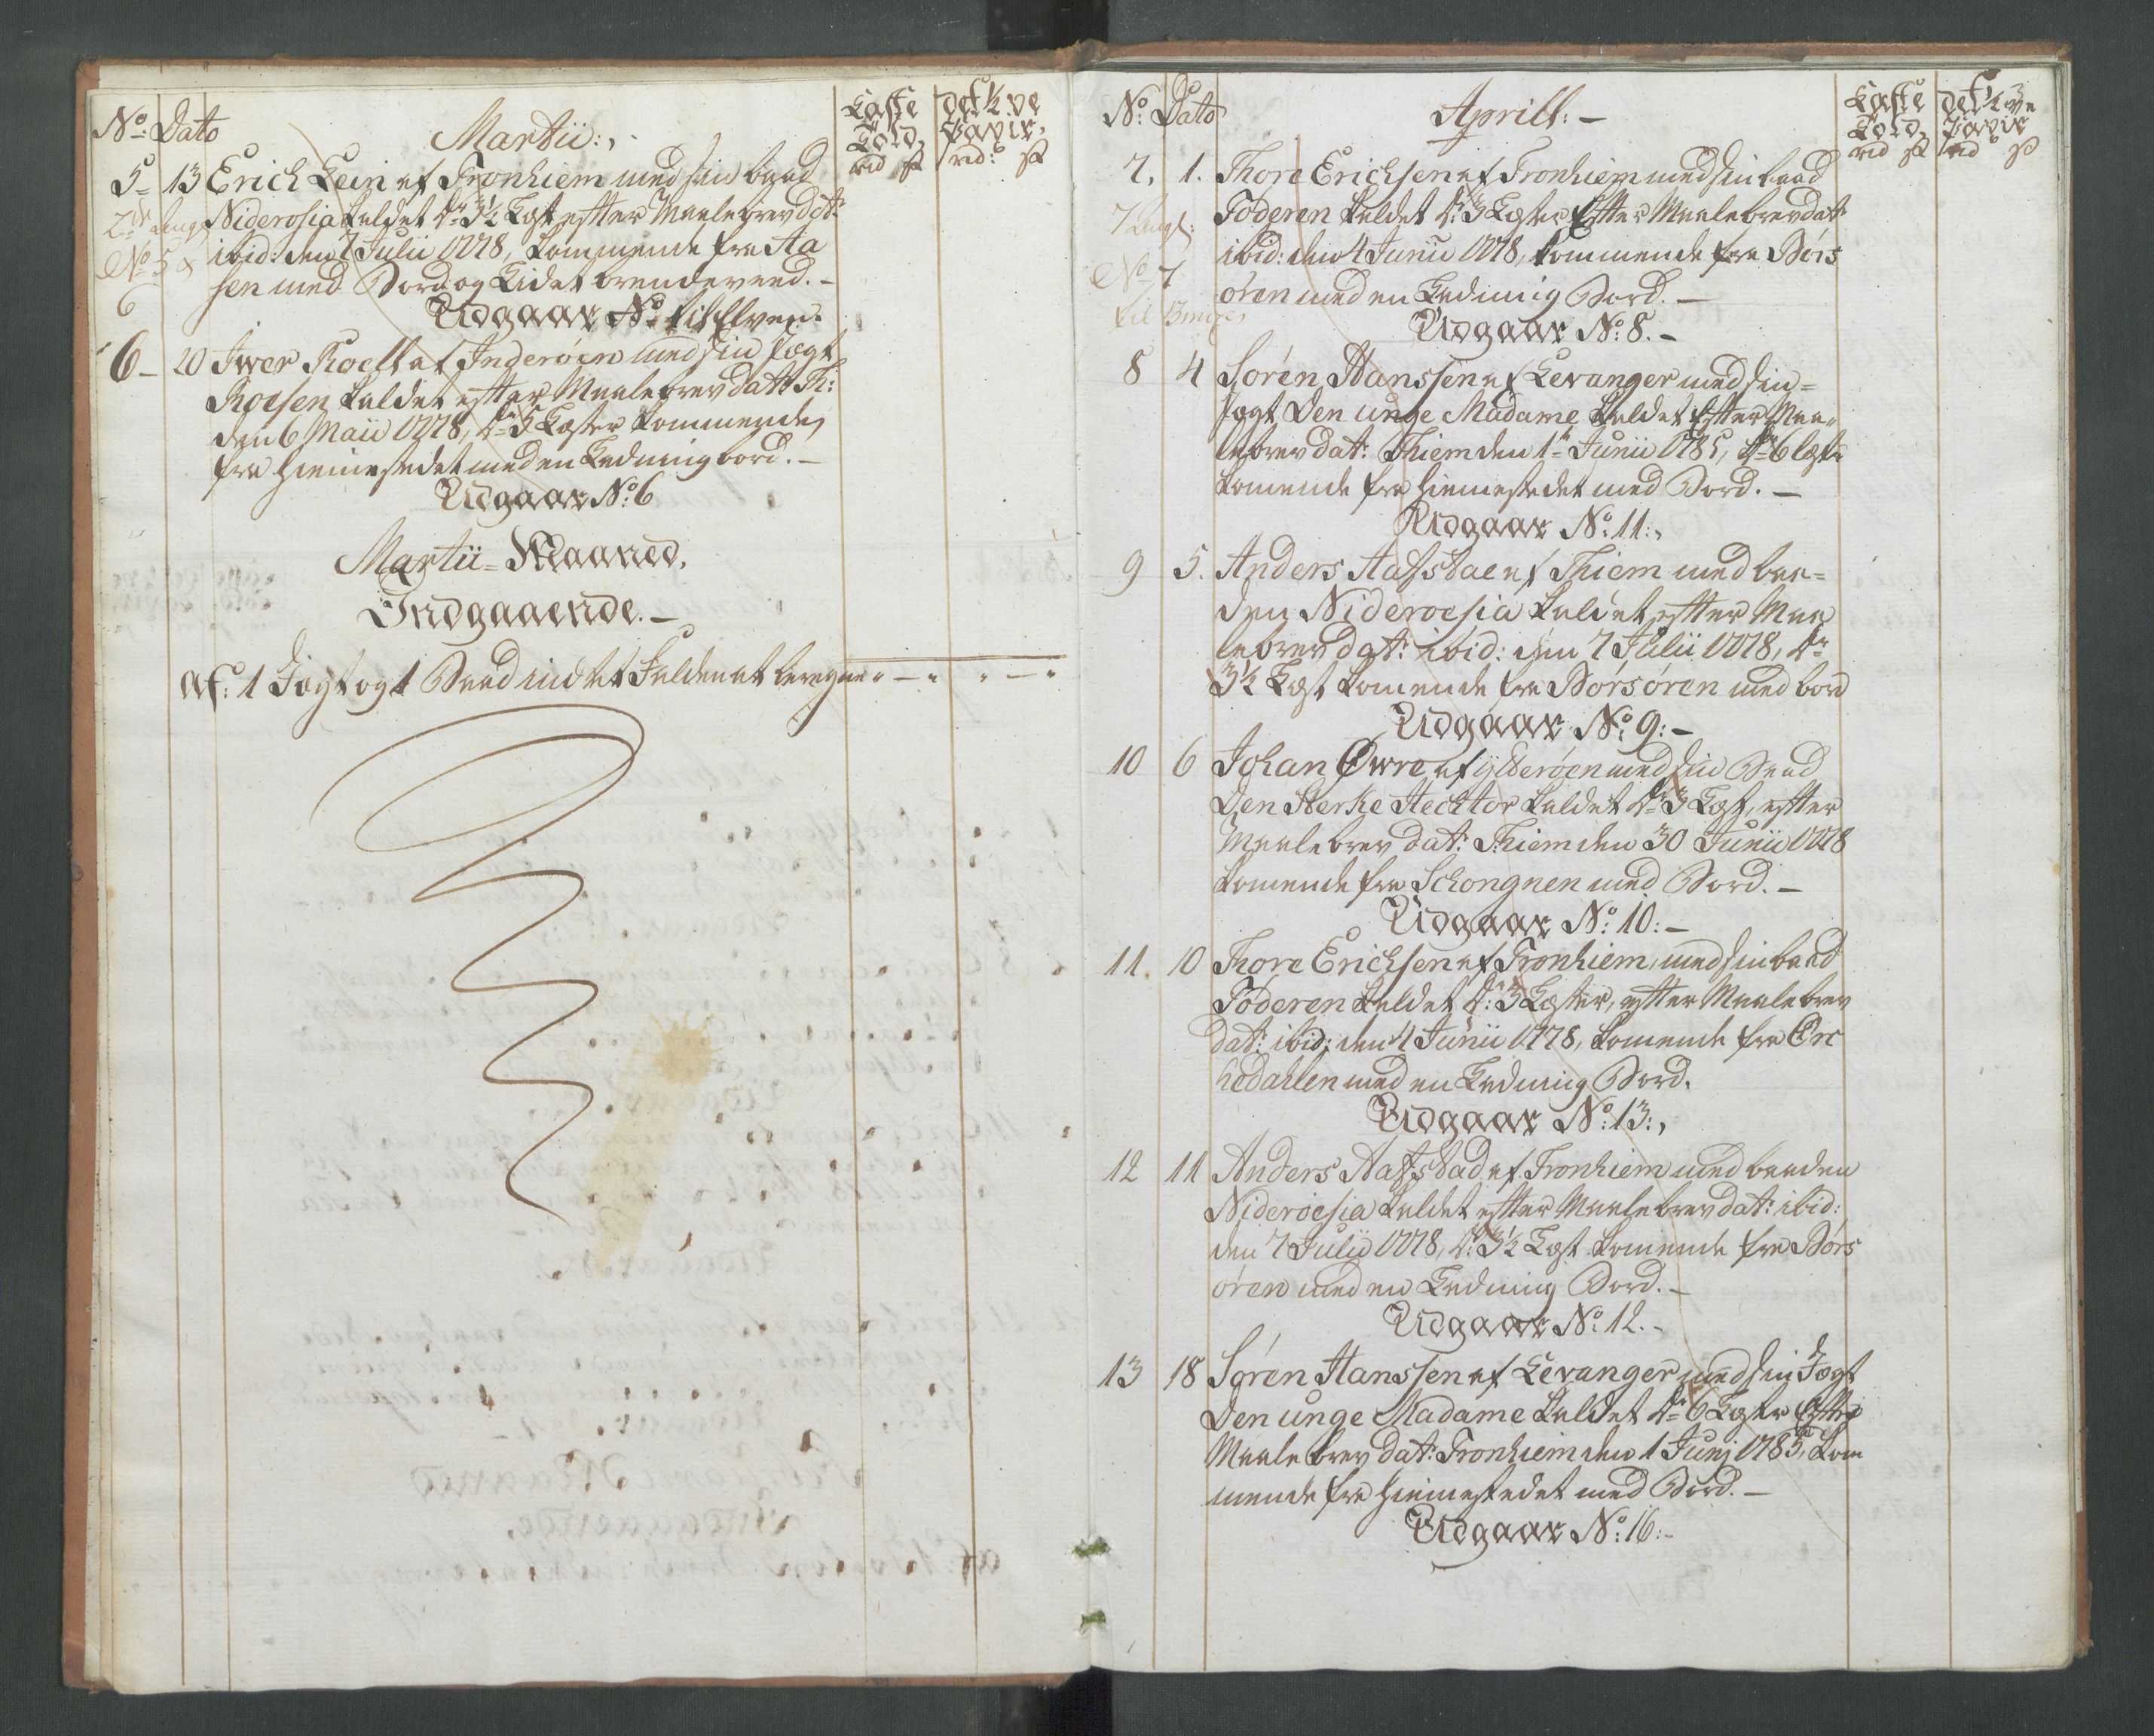 No Dato
Martii:,
Læste
Told,
rd ß
det ½ ve
Papir,
rd: ß
5- 13 Erich Lein af Tronhiem med sin baad
Niderosia kaldet dr: 3½ Læst efter Maalebrev dat:
No 5
ibid: den 7 Julii 1778, kommende fra Aa
sen med Bord og Lidet brendeveed.-
6
Udgaar No til Elven.
6- 20 Iwer Roell af Inderöen med sin Jægt
Roesen kaldet efter Maalebrev dat: Th:
den 6 Maii 1778, dr: 5 Læster kommende
fra Hiemestedet med en Ladning bord.-
Udgaar No: 6
Martii= Maaned,
Indgaaende.-
af: 1 Jægt og 1 Baad indtet Falden at beregne " - " " - "
No: Dato
Aprill:-
Læste
Told,
rd ß
det ½ ve
Papir
rd ß
7, 1. Thore Erichsen af Tronhiem med sin baad
Foderen kaldet dr: 3 Læster Efter Maalebrev dat:
ibid: den 4 Junii 1778, kommende fra Börs
No 7
ören med en Ladning Bord.-
Udgaar No: 8.-
8 4 Sören Hanssen af Levanger med sin=
Jægt Den unge Madame kaldet Efter Maa=
lebrev dat: Thiem den 1te Junii 1785, dr: 6 læster
komende fra Hiemestedet med Bord.-
Udgaar No: 11:,
9 5. Anders Aafstae af Thiem med baa=
den Nideroesia kaldet efter Maa
lebrev dat: ibid: den 7 Julii 1778, dr:
3½ Læst komende fra Börsören med bord
Udgaar No: 9:-
10 6 Johan Øwre af ytteröen med sin Baad
Den Sterke Hechtor kaldet dr: 3 Læst, efter
Maalebrev dat: Thiem den 30 Junii 1778
komende fra Schongnen med Bord.-
Udgaar No: 10:-
11. 10 Thore Erichsen af Tronhiem, med sin baad
Foderen kaldet dr: 3 Læster, efter Maalebrev
dat: ibid: den 4 Junii 1778, komende fra Orc
kedahlen med en Ladning Bord.
Udgaar No: 13:,
12 11 Anders Aafstad af Tronhiem med baaden
Nideroesia kaldet efter Maalebrev dat: ibid:
den 7 Julii 1778, dr: 3½ Læst komende fra Börs
ören med en Ladning Bord.-
Udgaar No: 12.-
13 18 Sören Hanssen af Levanger med sin Jægt
Den unge Madame kaldet dr: 6 Læster Efter
Maalebrev dat: Tronhiem den 1 Junj 1785, kom
mende fra Hiemestedet med Bord.-
Udgaar No: 16:-